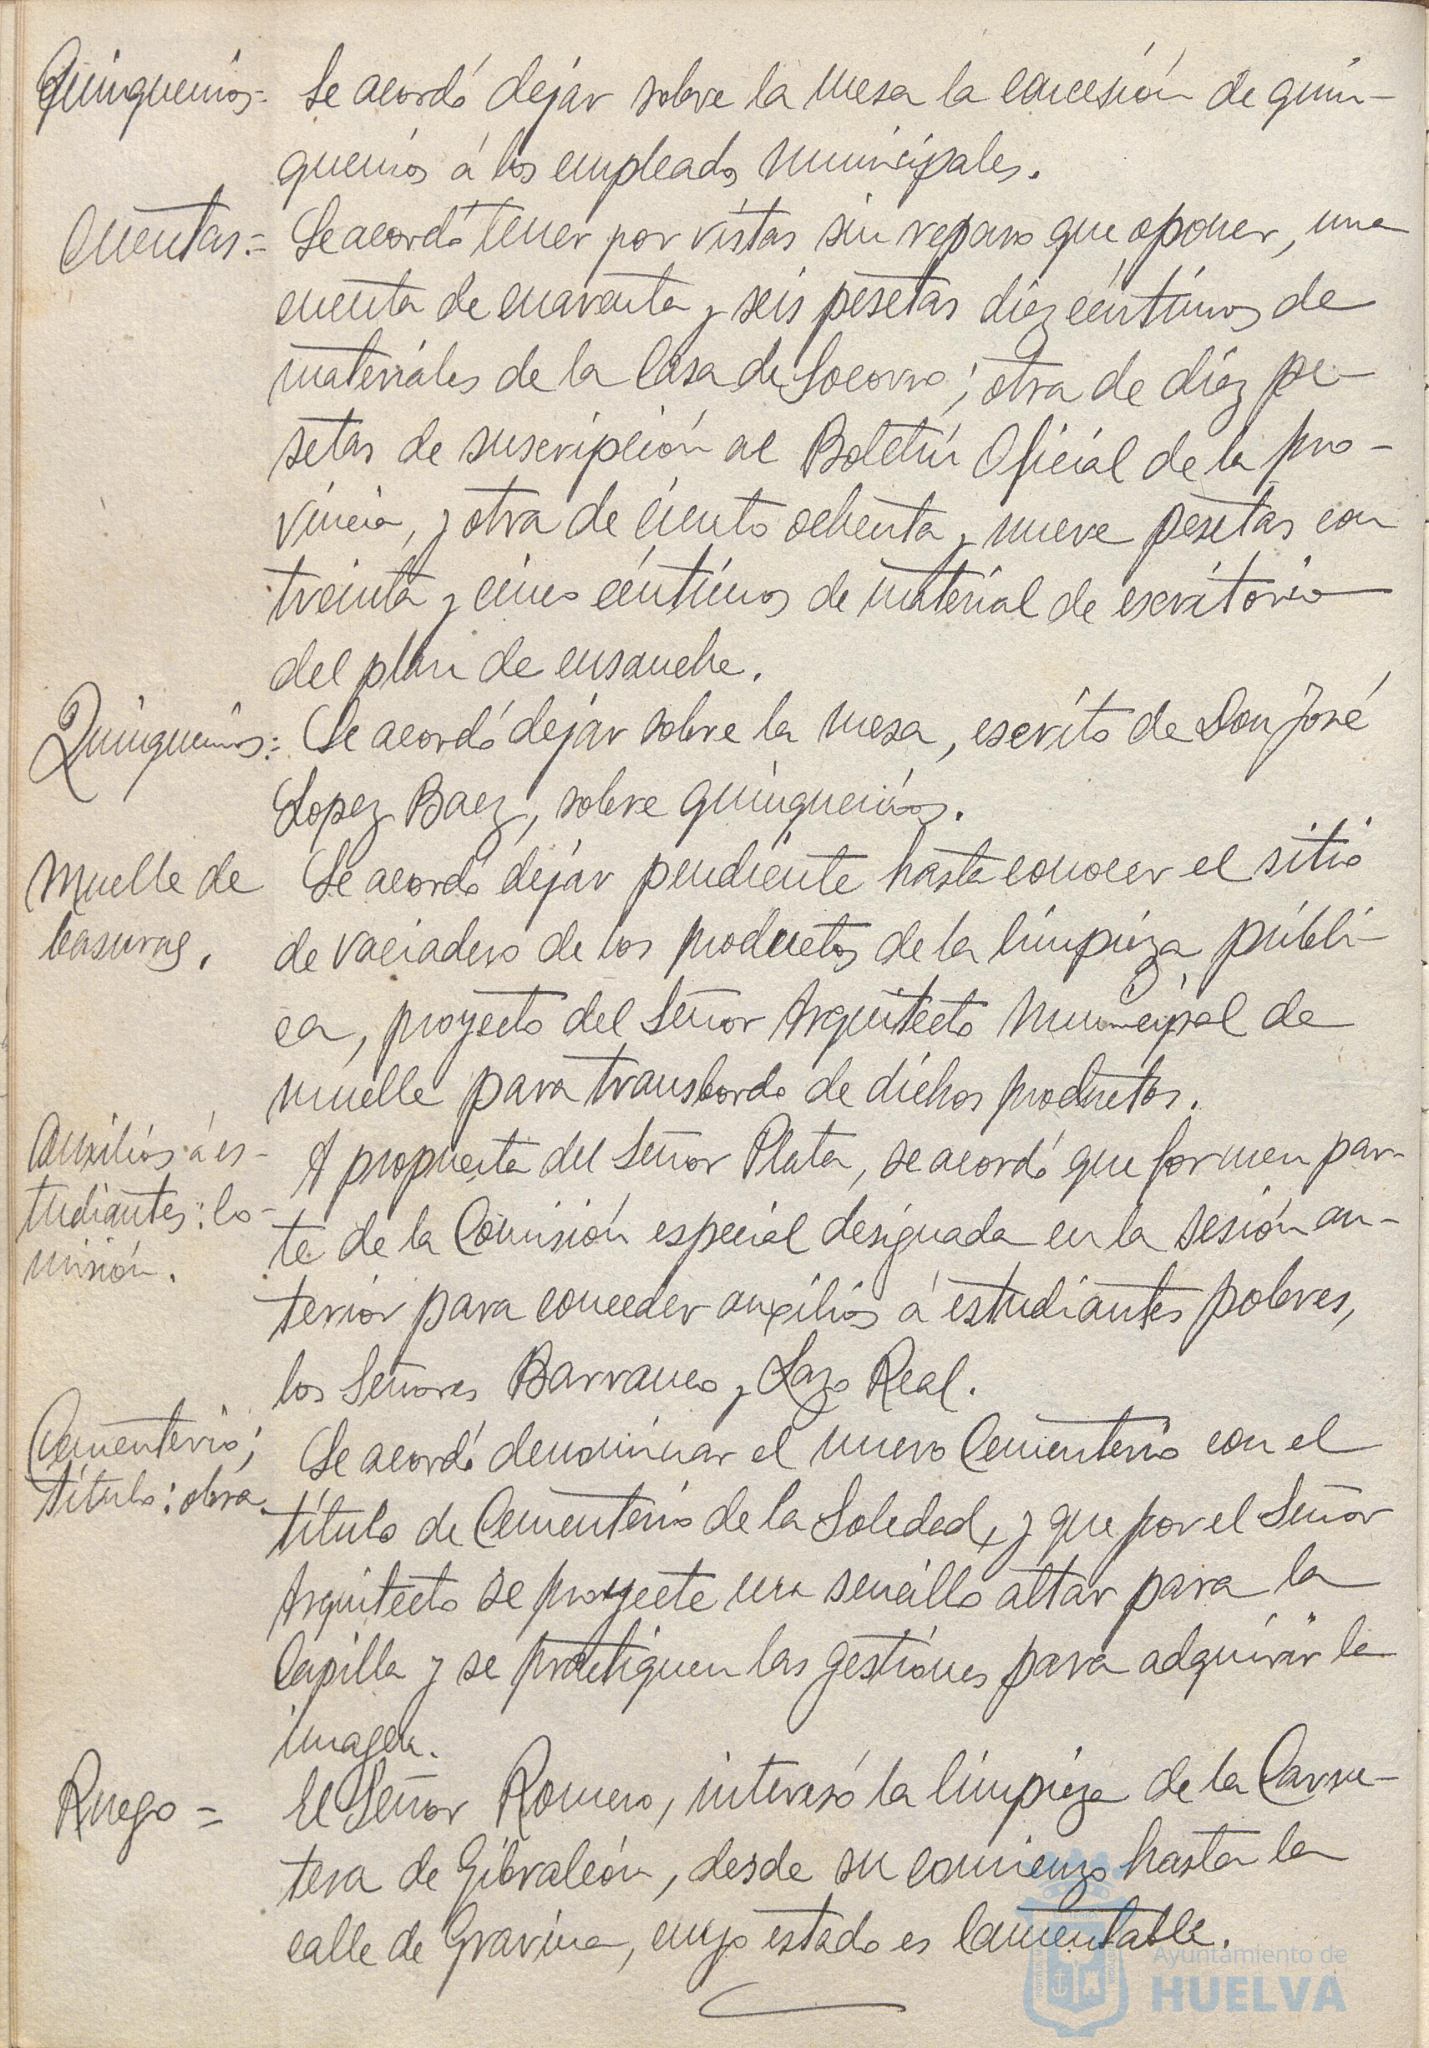 Quinquenios= Se acordó dejar sobre la mesa la concesión de quin-
quenios á los empleados municipales.
Cuentas.= Se acordó tener por vistas sin reparo que oponer, una
cuenta de cuarenta y seis pesetas diez céntimos de
materiales de la Casa de Socorro; otra de diez pe-
setas de suscripción al Boletín Oficial de la pro-
vincia, y otra de ciento ochenta y nueve pesetas con
treinta y cinco céntimos de material de escritorio
del plan de ensanche.
Quinquenios: Se acordó dejar sobre la mesa, escrito de Don José
Lopez Baez, sobre quinquenios.
Muelle de Se acordó dejar pendiente hasta conocer el sitio
basuras. de vaciadero de los productos de la limpieza públi-
ca, proyecto del Señor Arquitecto Municipal de
muelle para transbordo de dichos productos.
Auxilios á es- A propuesta del Señor Plata, se acordó que formen par-
tudiantes: Co- te de la Comisión especial designada en la sesión an-
misión. terior para conceder auxilios á estudiantes pobres,
los Señores Barranco y Lazo Real.
Cementerio; Se acordó denominar el nuevo Cementerio con el
título: obra. título de Cementerio de la Soledad, y que por el Señor
Arquitecto se proyecte un sencillo altar para la
Capilla y se practiquen las gestiones para adquirir la
imagen.
Ruego = El Señor Romero, interesó la limpieza de la Carre-
tera de Gibraleón, desde su comienzo hasta la
calle de Gravina, cuyo estado es lamentable.
Ayuntamiento de
HUELVA